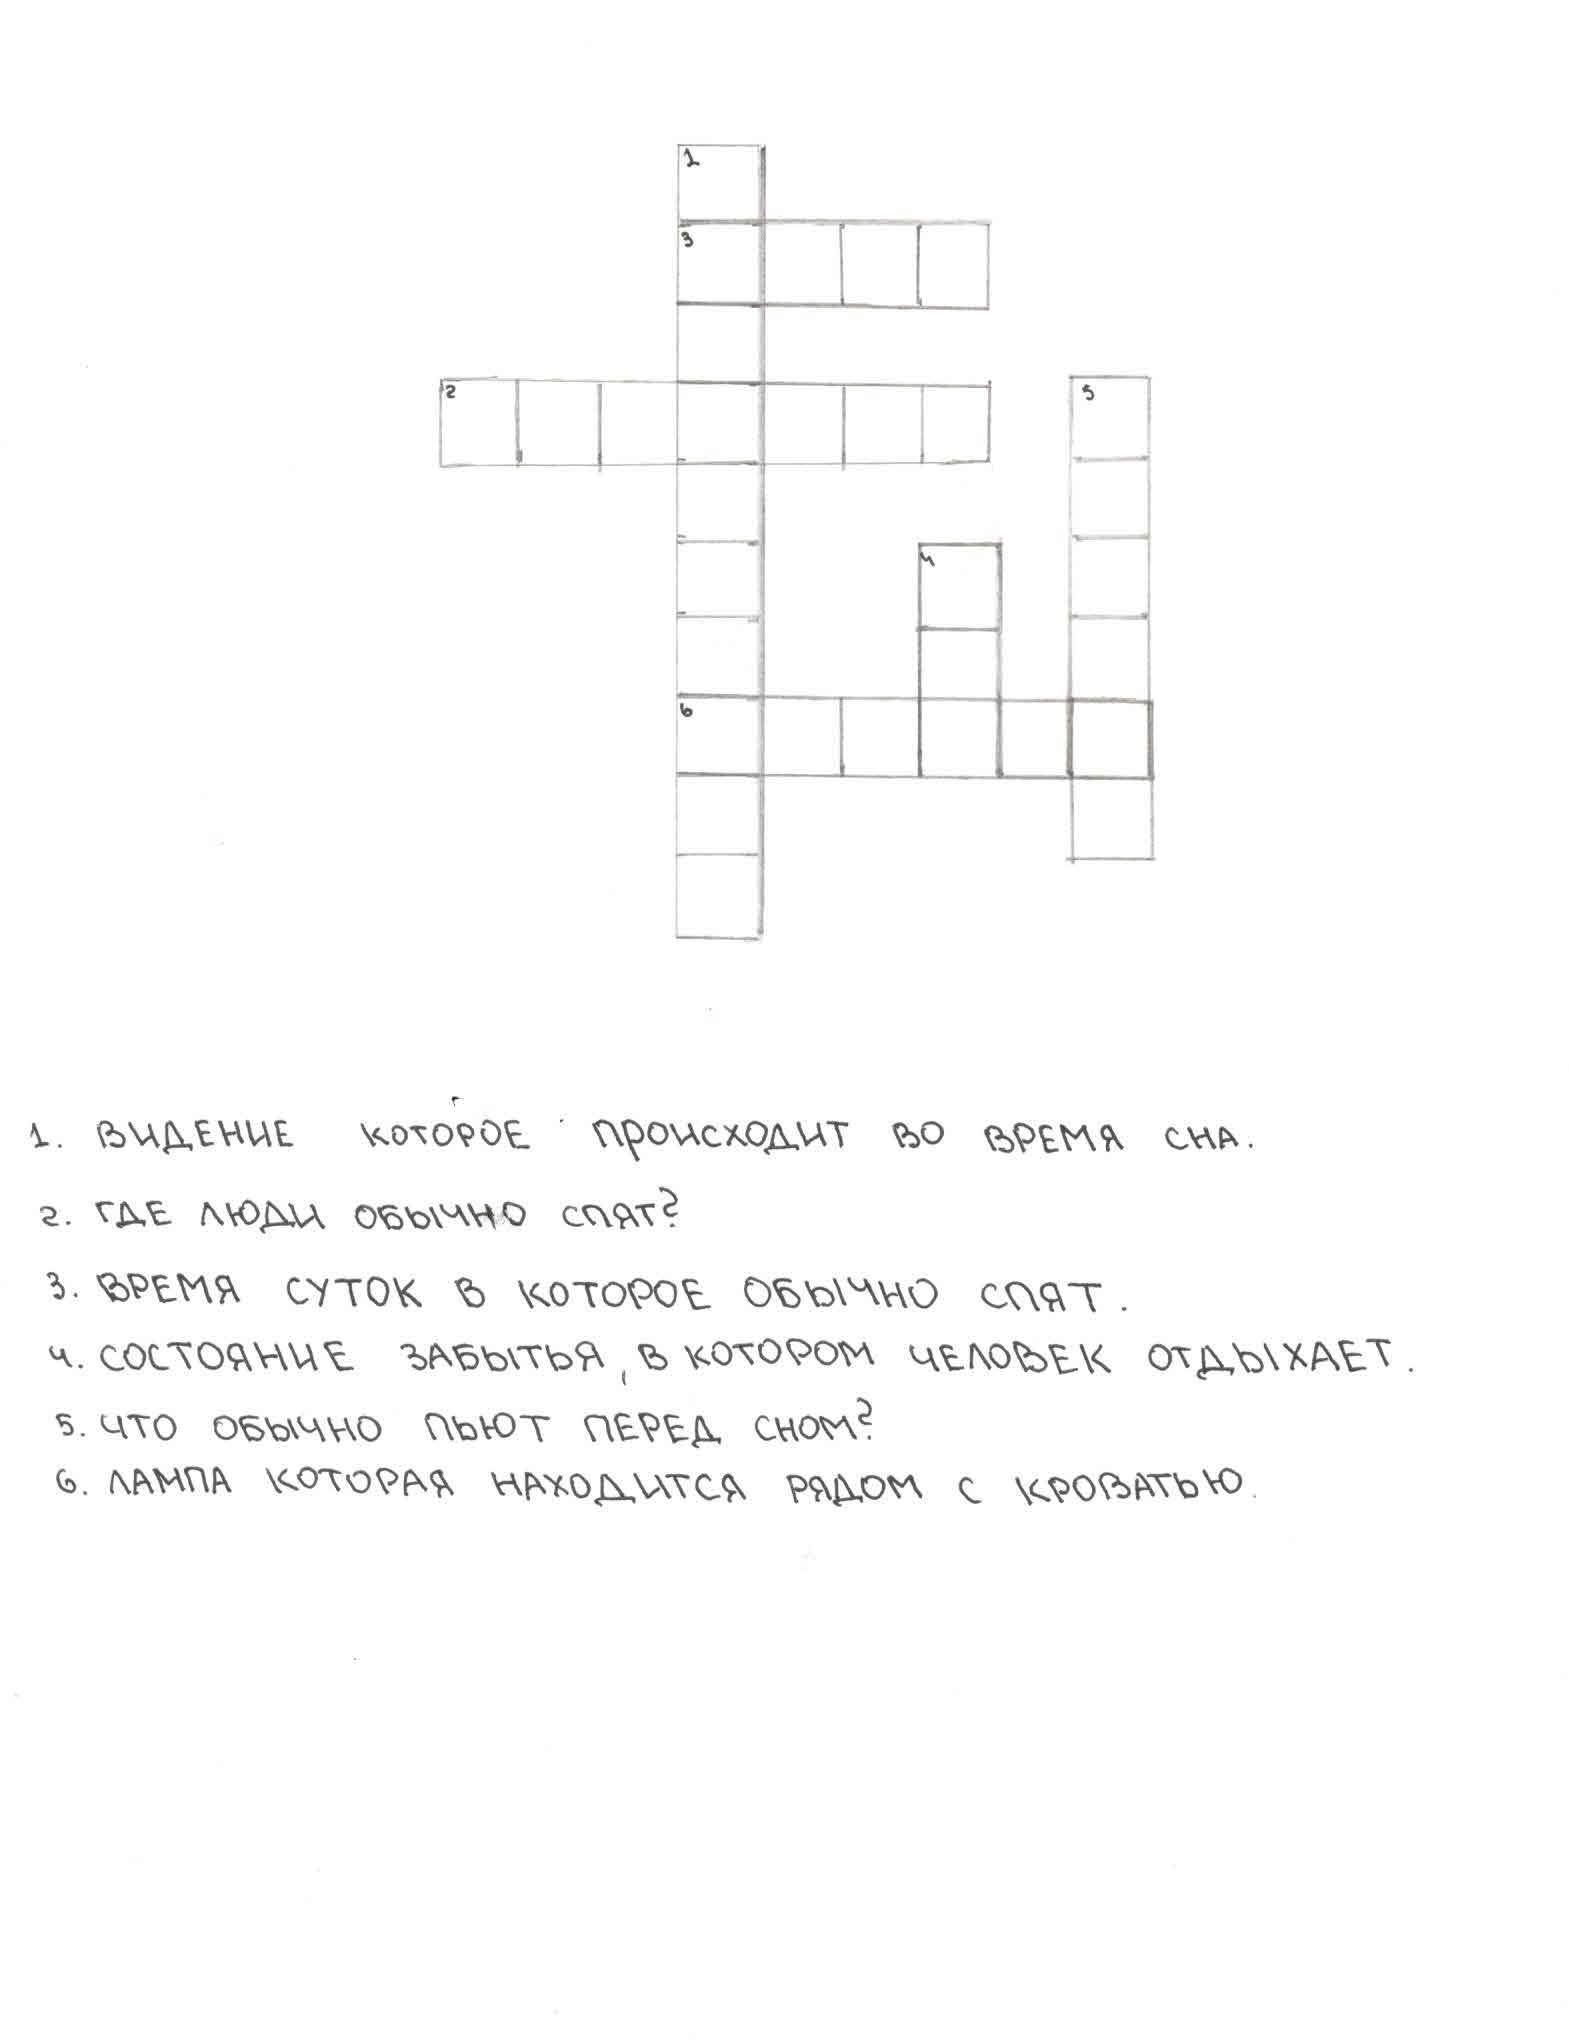 1
3
2
5
4
6
1. ВИДЕНИЕ КОТОРОЕ ПРОИСХОДИТ ВО ВРЕМЯ СНА.
2. ГДЕ ЛЮДИ ОБЫЧНО СПЯТ?
3. ВРЕМЯ СУТОК В КОТОРОЕ ОБЫЧНО СПЯТ.
4. СОСТОЯНИЕ ЗАБЫТЬЯ, В КОТОРОМ ЧЕЛОВЕК ОТДЫХАЕТ.
5. ЧТО ОБЫЧНО ПЬЮТ ПЕРЕД СНОМ?
6. ЛАМПА КОТОРАЯ НАХОДИТСЯ РЯДОМ С КРОВАТЬЮ.